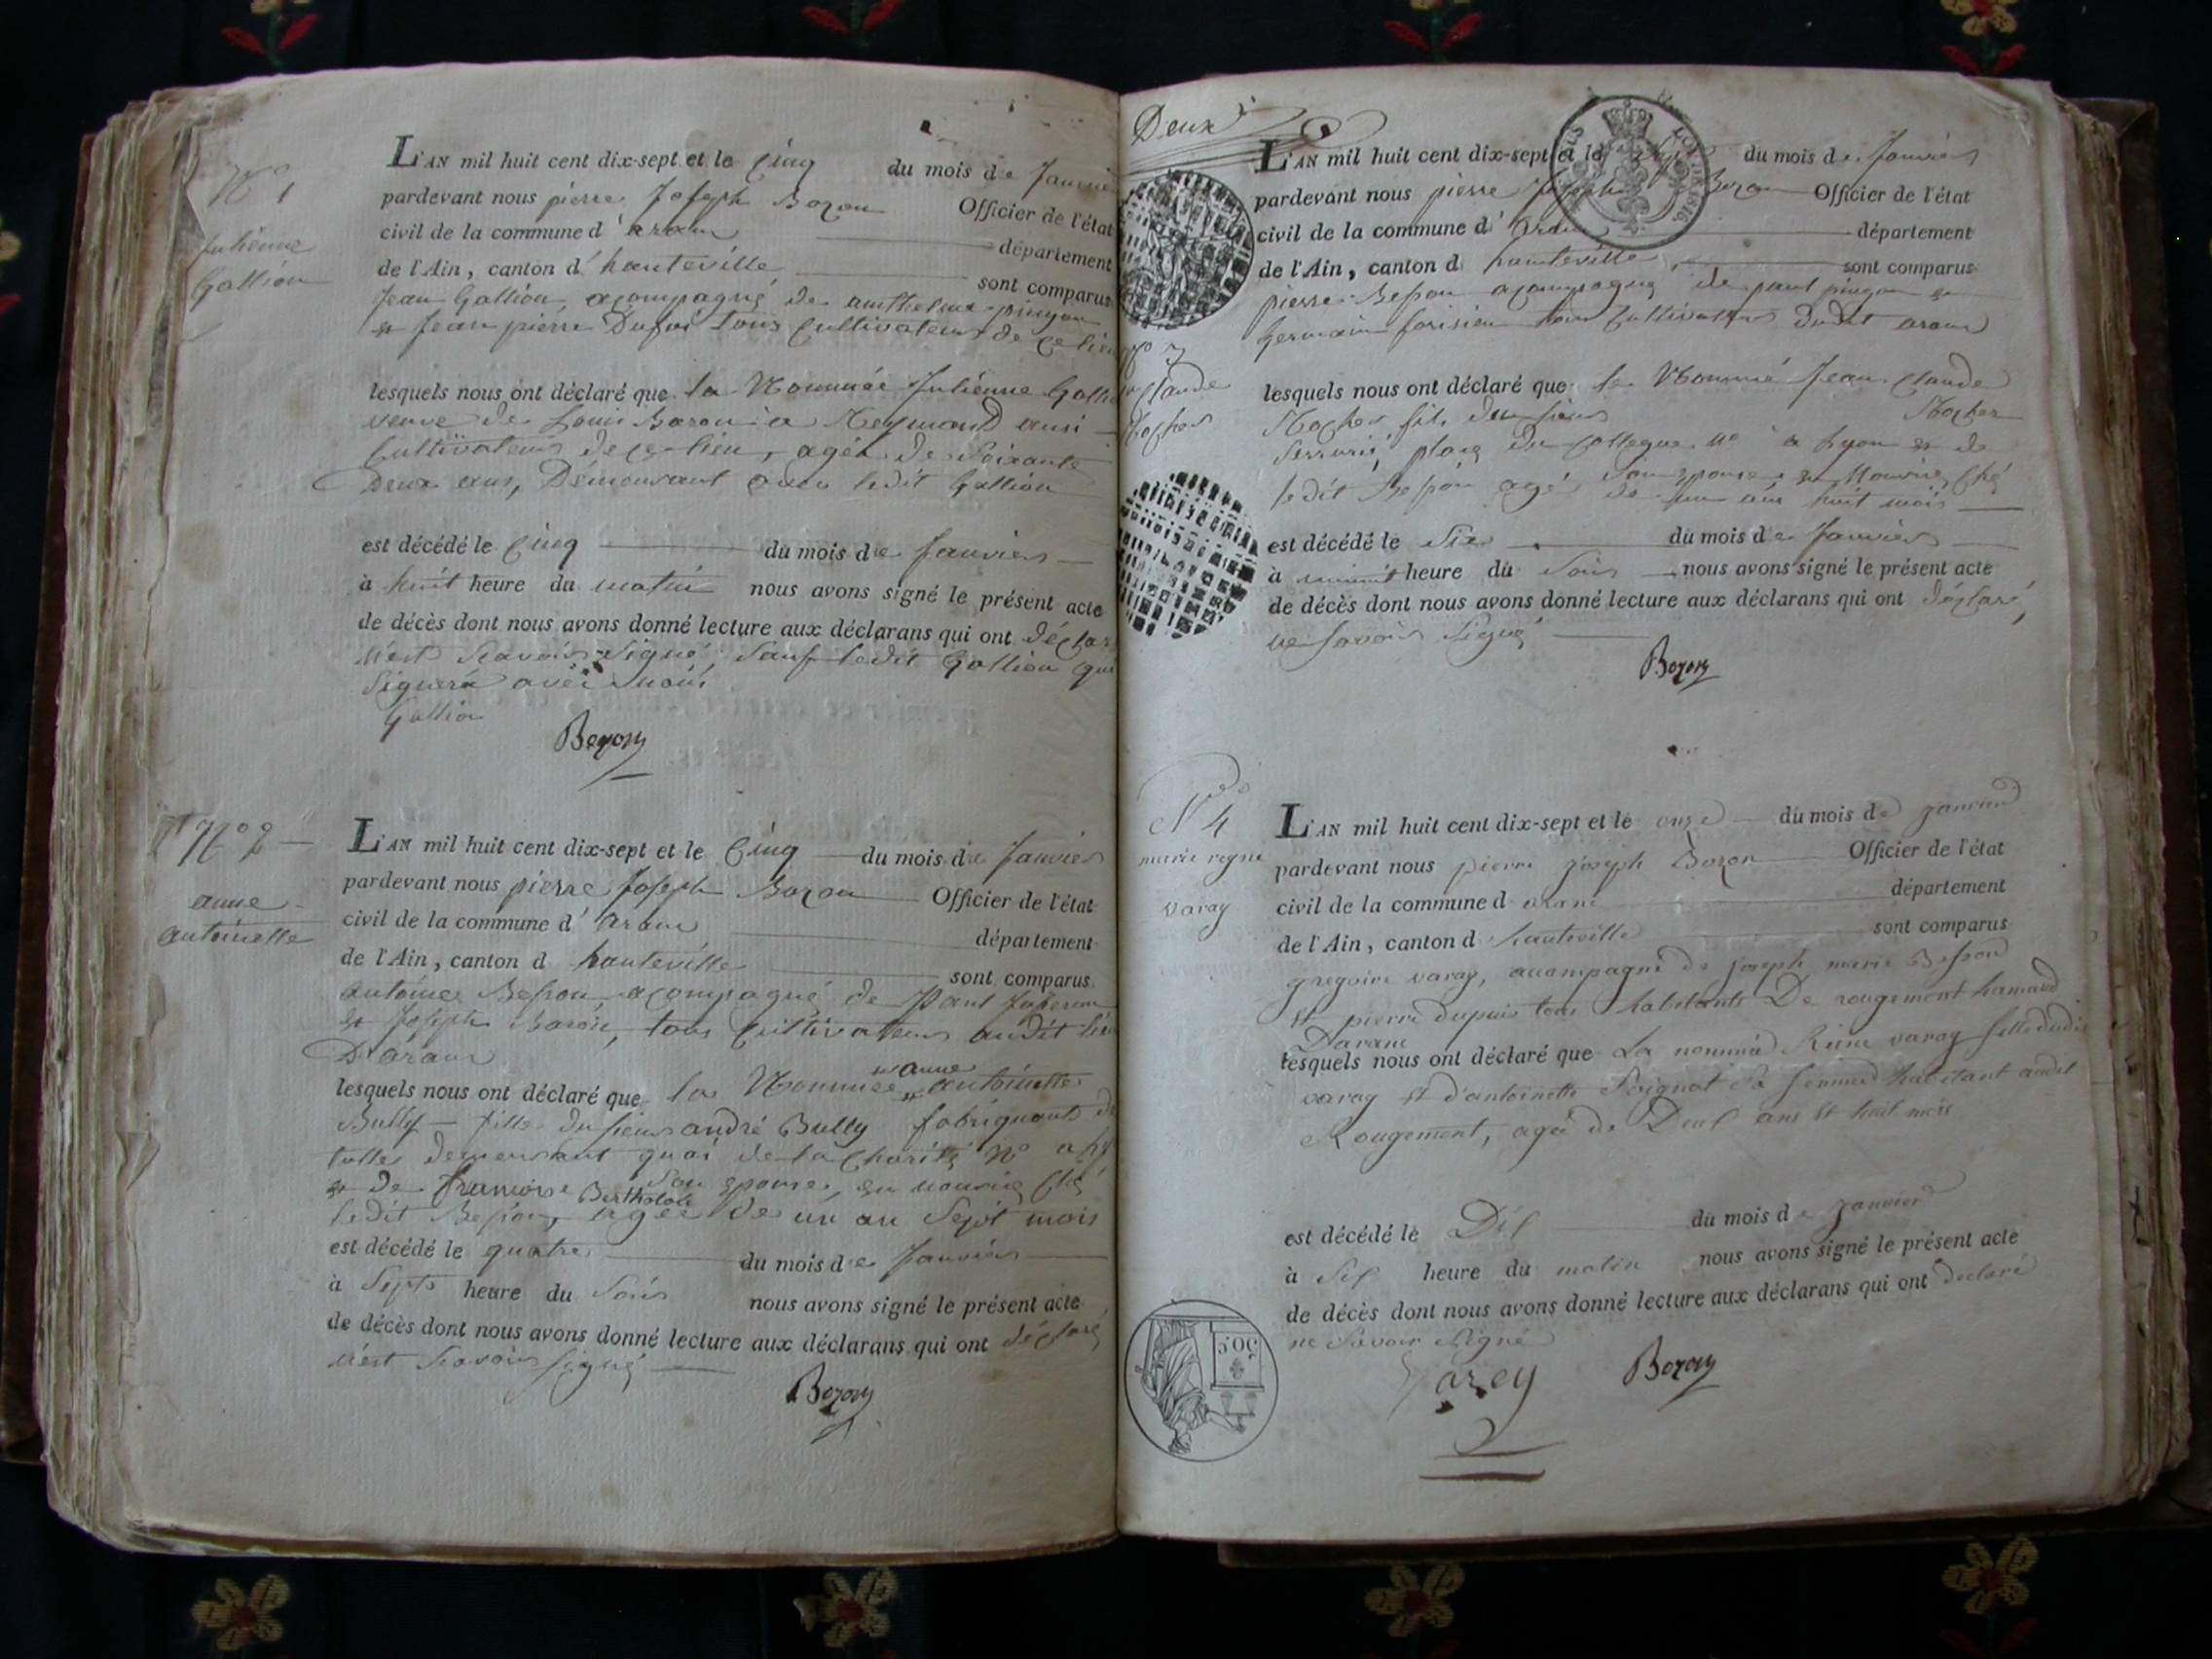 N° 1
Julienne
Gallion
L'AN mil huit cent dix-sept et le cinq du mois de Janvier
pardevant nous pierre Joseph Bozon Officier de l'état
civil de la commune d'aranc département
de l'Ain, canton d'hauteville sont comparus
Jean Gallion acompagné de anthelme pingon
et Jean pierre Dupuis tous Cultivateurs de ce lieu
lesquels nous ont déclaré que la Nommée Julienne Gallion
veuve de Louis Baron a Reymond
Cultivateur de ce lieu, agée de Soixante
Deux ans, Démeurant avec ledit Gallion
est décédé le Cinq du mois de Janvier
à huit heure du matin nous avons signé le présent acte
de décès dont nous avons donné lecture aux déclarans qui ont déclaré
Scavoir Signé, Sauf ledit Gallion qui
Signera avec nous
Gallion
Bozon
N° 2
anne
antoinette
L'AN mil huit cent dix-sept et le Cinq du mois de Janvier
pardevant nous pierre Joseph Bozon Officier de l'état
civil de la commune d'aranc département
de l'Ain, canton d hauteville sont comparus
antoine Besson acompagné de Paul
et Joseph Baron, tous Cultivateurs audit lieu
D'aranc
lesquels nous ont déclaré que la Nommée anne antoinette
Bully fille du sieur andré Bully fabriquant de
tulles demeurant quai de la Charité N°
et de francoise Bertholat Son epouse, en nourrice ché
ledit Besson, agée de un an Sept mois
est décédé le quatre du mois de Janvier
à Sept heure du Soir nous avons signé le présent acte
de décès dont nous avons donné lecture aux déclarans qui ont déclaré
Scavoir signé
Bozon
Deux
L'AN mil huit cent dix-sept et le Sept du mois de Janvier
pardevant nous pierre Joseph Bozon Officier de l'état
civil de la commune d'aranc département
de l'Ain, canton d hauteville sont comparus
pierre Besson acompagné de paul pingon et
germain tous Cultivateurs dudit aranc
N° 3
Claude
lesquels nous ont déclaré que le Nommé Jean Claude
fils du sieur
Serrurié, place du Collegue N° a Lyon et de
Son epouse en Nourrice Ché
ledit Besson agé de un an huit mois
est décédé le Six du mois de Janvier
à minuit heure du Soir nous avons signé le présent acte
de décès dont nous avons donné lecture aux déclarans qui ont déclaré
ne Savoir Signé
Bozon
N° 4
marie regne
varay
L'AN mil huit cent dix-sept et le onze du mois de janvier
pardevant nous pierre joseph Bozon Officier de l'état
civil de la commune d aranc département
de l'Ain, canton d hauteville sont comparus
gregoire varay, accompagné de joseph marie Besson
et pierre dupuis tous habitants De rougement hamaud
Daranc
lesquels nous ont déclaré que La nommé Reine varay fille dudit
varay et d'antoinette Poignat Sa femme habitant audit
Rougement, agée de Deuf ans et huit mois
est décédé le Dif du mois de janvier
à Sif heure du matin nous avons signé le présent acte
de décès dont nous avons donné lecture aux déclarans qui ont déclaré
ne Savoir Signé
Varey
Bozon
50 c